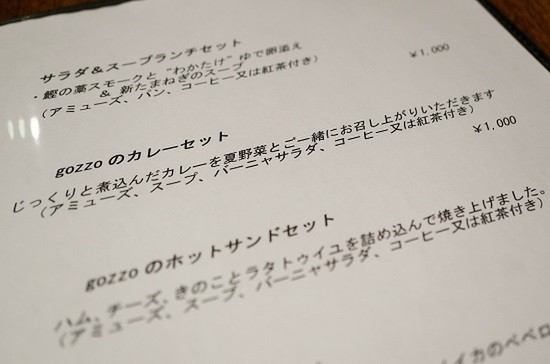 サラダ＆スープランチセット
・鰹の藁スモークと“わかたけ”ゆで卵添え
＆ 新たまねぎのスープ
（アミューズ、パン、コーヒー又は紅茶付き）
￥1,000
gozzo のカレーセット
じっくりと煮込んだカレーを夏野菜とご一緒にお召し上がりいただきます
（アミューズ、スープ、バーニャサラダ、コーヒー又は紅茶付き）
￥1,000
gozzo のホットサンドセット
ハム、チーズ、きのことラタトゥイユを詰め込んで焼き上げました。
（アミューズ、スープ、バーニャサラダ、コーヒー又は紅茶付き）
イカのペペロ